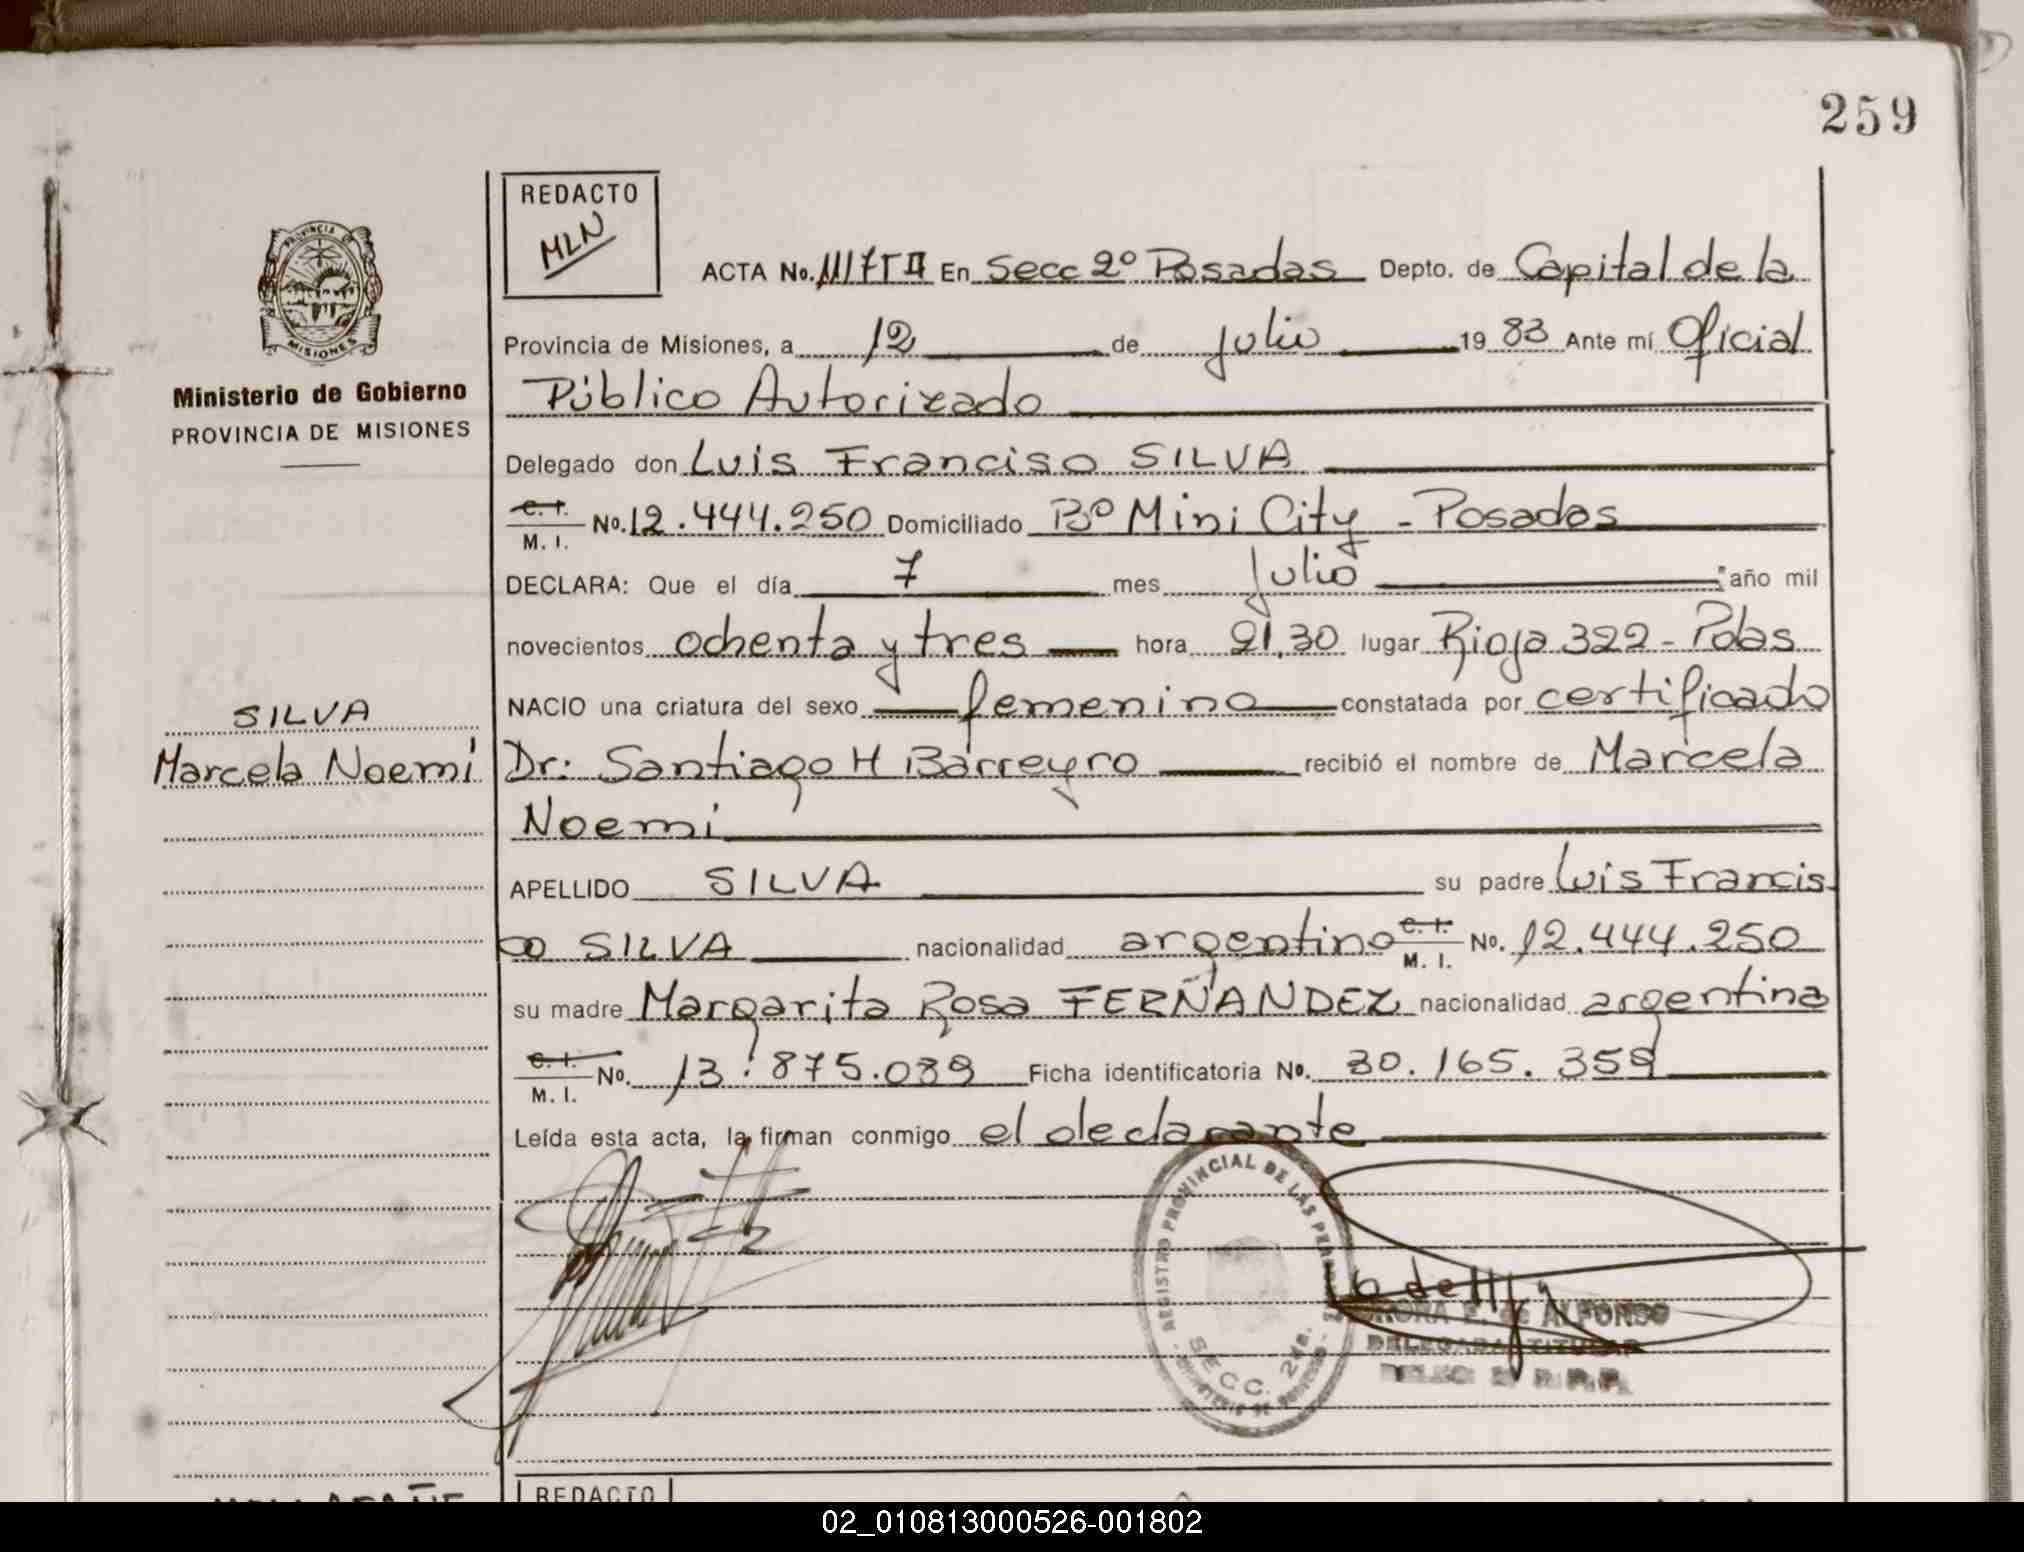 259
REDACTO
MLN
ACTA No. En Secc 2º Posadas Depto. de Capital de la
Provincia de Misiones, a 12 de Julio 19 83 Ante mí Oficial
Público Autorizado
Ministerio de Gobierno
PROVINCIA DE MISIONES
Delegado don Luis Franciso SILVA
C. I. M. I. No. 12.444.250 Domiciliado Bº Mini City - Posadas
DECLARA: Que el día 7 mes Julio año mil
novecientos ochenta y tres hora 21,30 lugar Rioja 322 - Pdas
NACIO una criatura del sexo femenino constatada por certificado
SILVA
Marcela Noemí
Dr: Santiago H Barreyro recibió el nombre de Marcela
Noemi
APELLIDO SILVA su padre Luis Francis
co SILVA nacionalidad argentino C. I. M. I. No. 12.444.250
su madre Margarita Rosa FERNANDEZ nacionalidad argentina
C. I. M. I. No. 13.875.089 Ficha identificatoria No. 30.165.359
Leída esta acta, la firman conmigo el declarante
REGISTRO PROVINCIAL DE LAS PERSONAS
SECC. 2da.
E. de ALFONSO
DELEGADA TITULAR
REDACTO
02_010813000526-001802